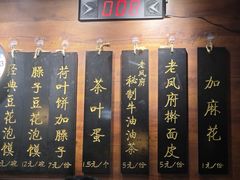 000
经典豆花泡馍
元/碗
臊子豆花泡馍
12元/碗
荷叶饼加臊子
7元/份
茶叶蛋
1.5元/个
老凤府
秘制牛油油茶
5元/份
老凤府擀面皮
5元/份
加麻花
1元/份